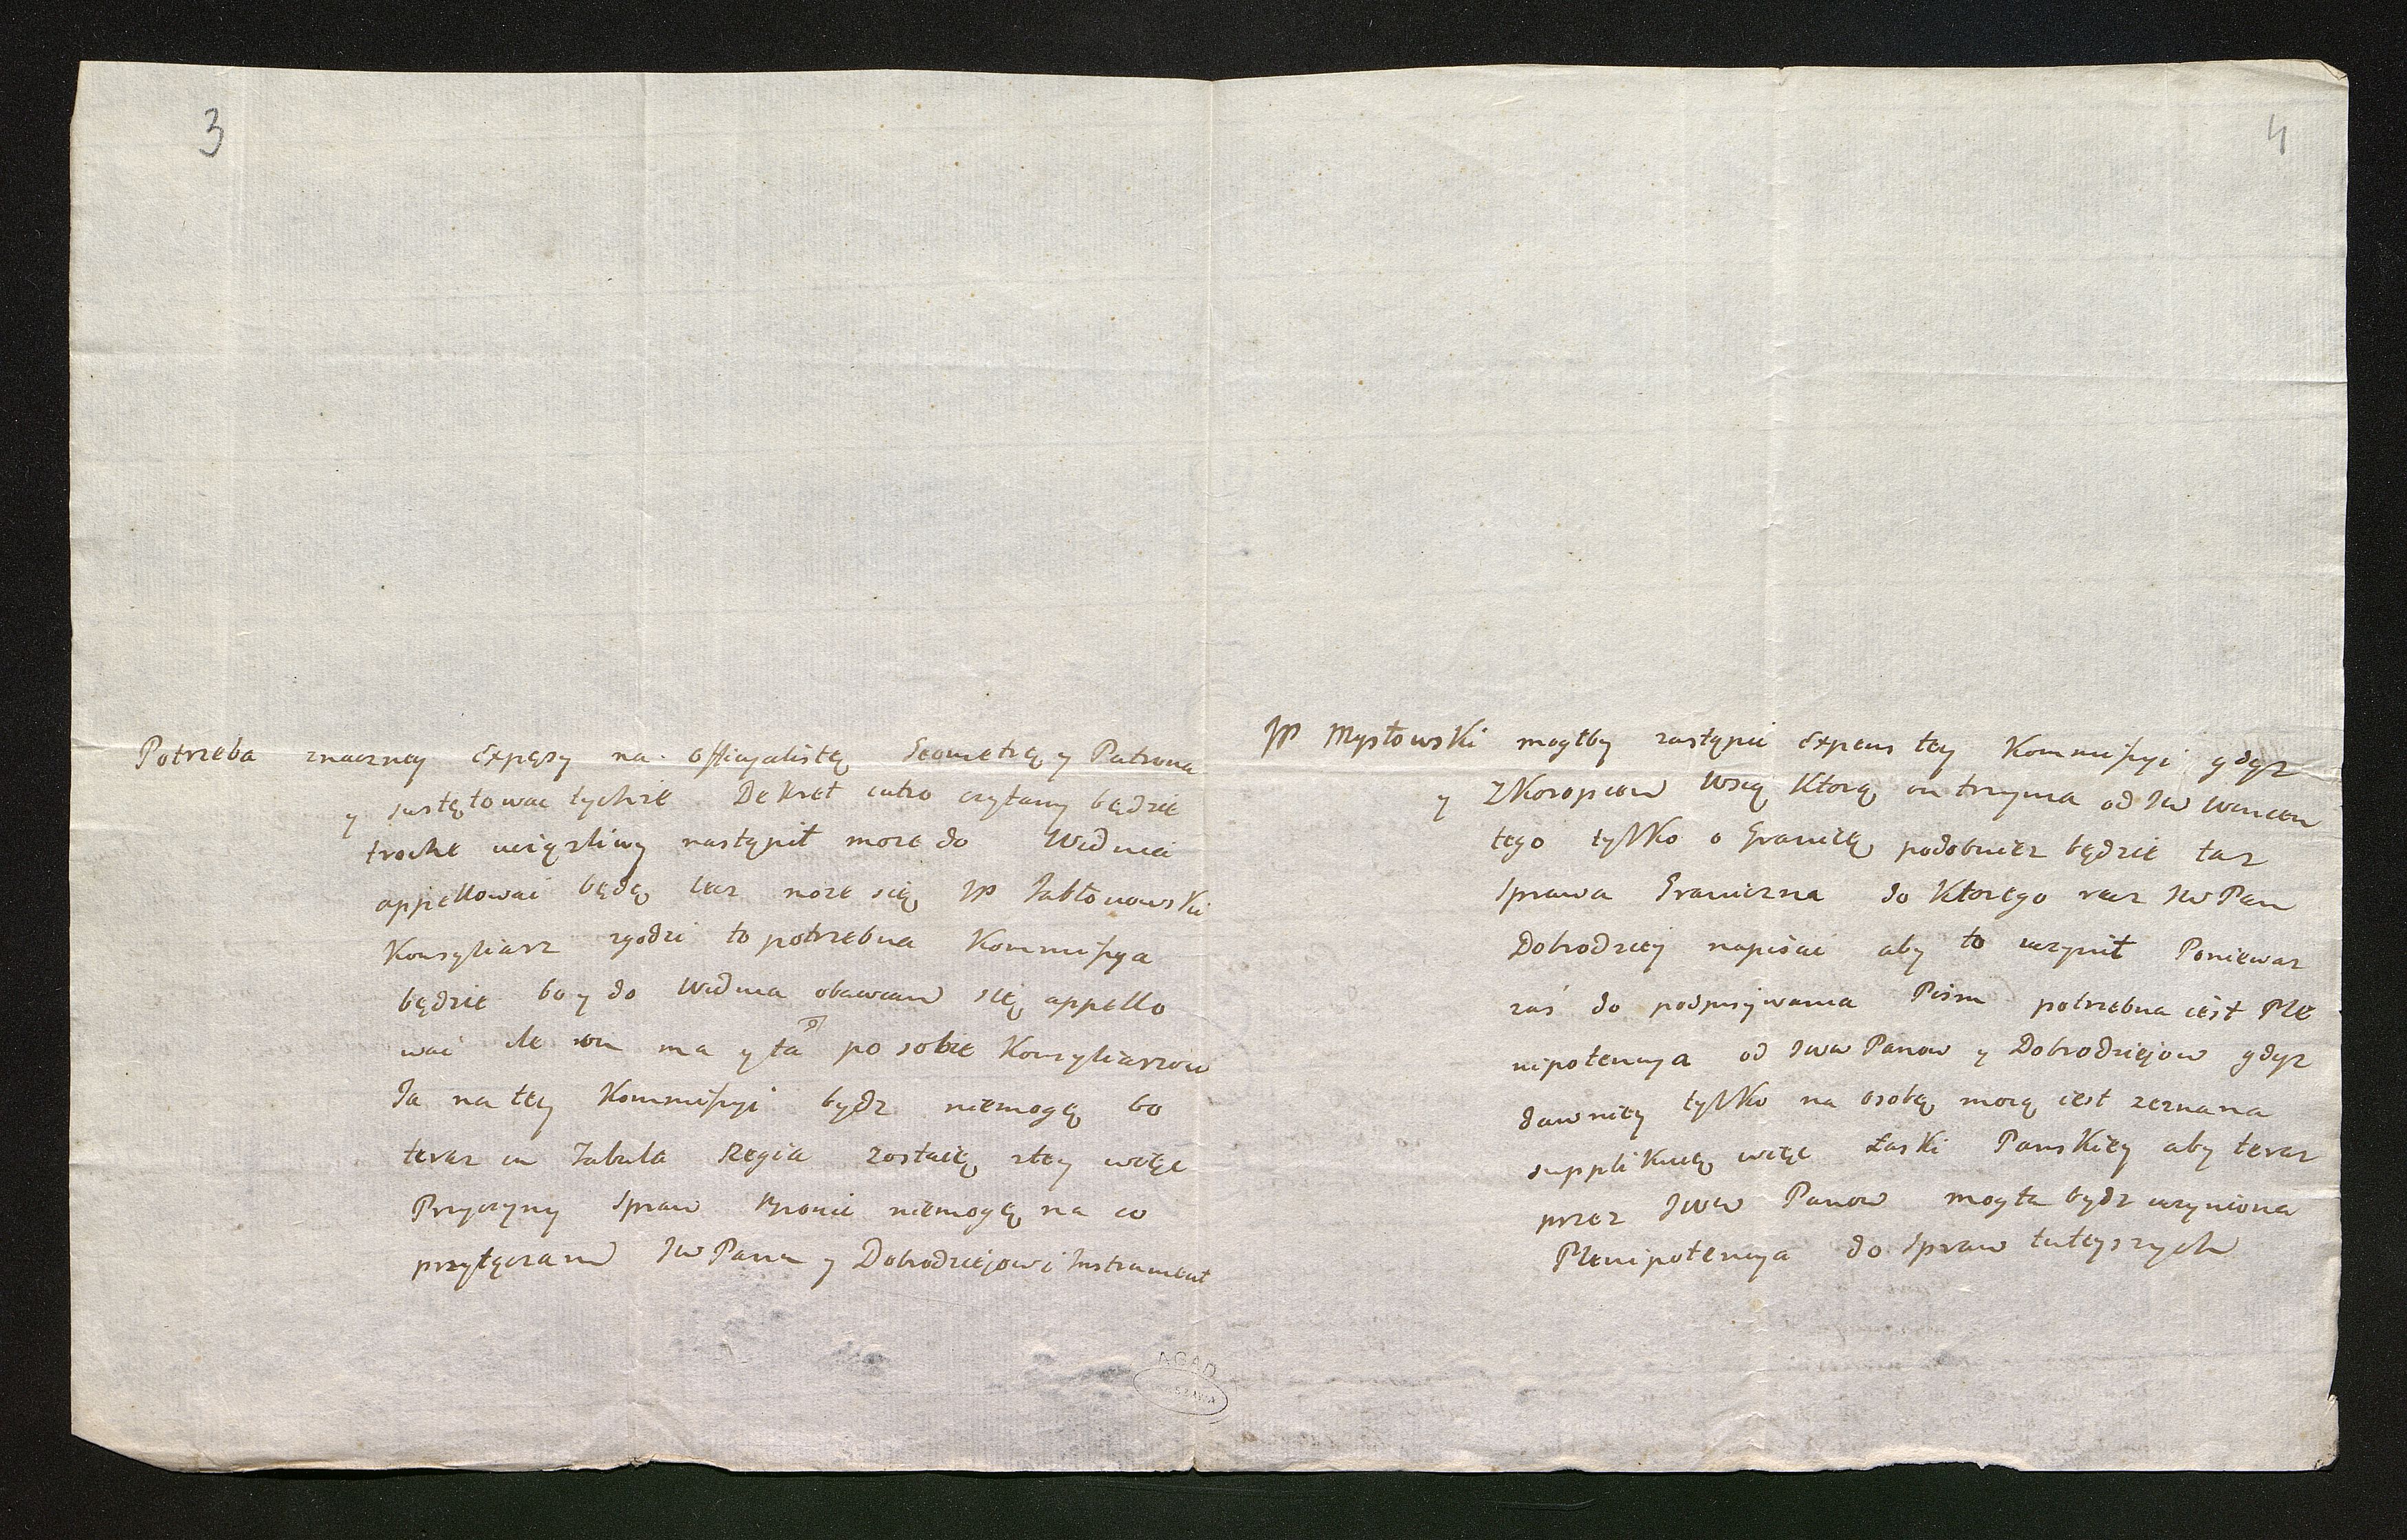 3
Potrzeba znaczney Expęsy na Officyalistę Geometrę y Patrona
y sustętować tychże Dekret iutro czytany będzie
troche uciązliwy nastąpił może do Widnia
appellować będę lecz może się JP Jabłonowski
Konsyliarz zgodzi to potrzebna Kommissya
będzie bo y do Widnia obawiam się appello
wać ile on ma y ta po sobie Konsyliarzow
Ja na tey Kommissyi bydz niemogę bo
teraz in Tabula Regia zostaię ztey więc
Przyczyny Spraw bronić niemogę na co
przyłączam JW Pana y Dobrodziejowi Instrument
4
JP Mysłowski mogłby zastąpić Expens tey Kommissyi gdyz
y Zkoropcem Wsią Ktorą on trzyma od JW
tego tylko o Granicę podobniez będzie taz
Sprawa Graniczna do Ktorego racz JW Pan
Dobrodziey napisać aby to uczynił Poniewaz
zaś do podpisywania Pism potrzebna iest Ple
nipotencya od JWW Panow y Dobrodziejow gdyz
dawniey tylko na osobę moią iest zeznana
supplikuię więc Łaski Panskiey aby teraz
przez JWW Panow mogła bydz uczyniona
Plenipotencya do Spraw tuteyszych
AGAD